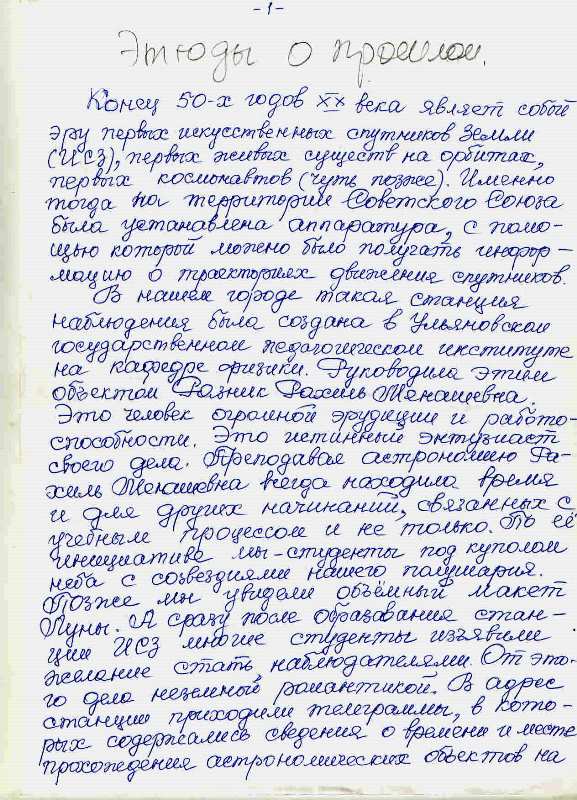 - 1 -
Этюды о прошлом.
Конец 50-х годов XX века являет собой
эру первых искусственных спутников Земли
(ИСЗ), первых живых существ на орбитах,
первых космонавтов (чуть позже). Именно
тогда на территории Советского Союза
была установлена аппаратура, с помо-
щью которой можно было получать инфор-
мацию о траекториях движения спутников.
В нашем городе такая станция
наблюдения была создана в Ульяновском
государственном педагогическом институте
на кафедре физики. Руководила этим
объектом Разник Рахиль Менашевна.
Это человек огромной эрудиции и работо-
способности. Это истинный энтузиаст
своего дела. Преподавая астрономию Ра-
хиль Менашевна всегда находила время
и для других начинаний, связанных с
учебным процессом и не только. По её
инициативе мы-студенты под куполом
неба с созвездиями нашего полушария.
Позже мы увидели объёмный макет
Луны. А сразу после образования стан-
ции ИСЗ многие студенты изъявили
желание стать наблюдателями. От это-
го дела неземной романтикой. В адрес
станции приходили телеграммы, в кото-
рых содержались сведения о времени и месте
прохождения астрономических объектов на